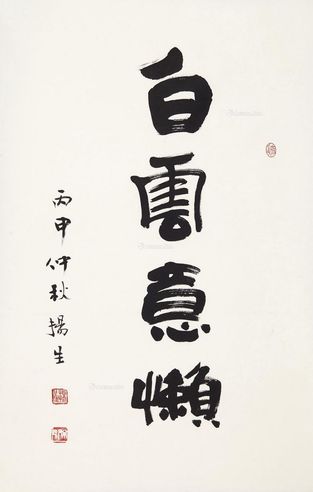 白雲意懶
丙申仲秋揚生